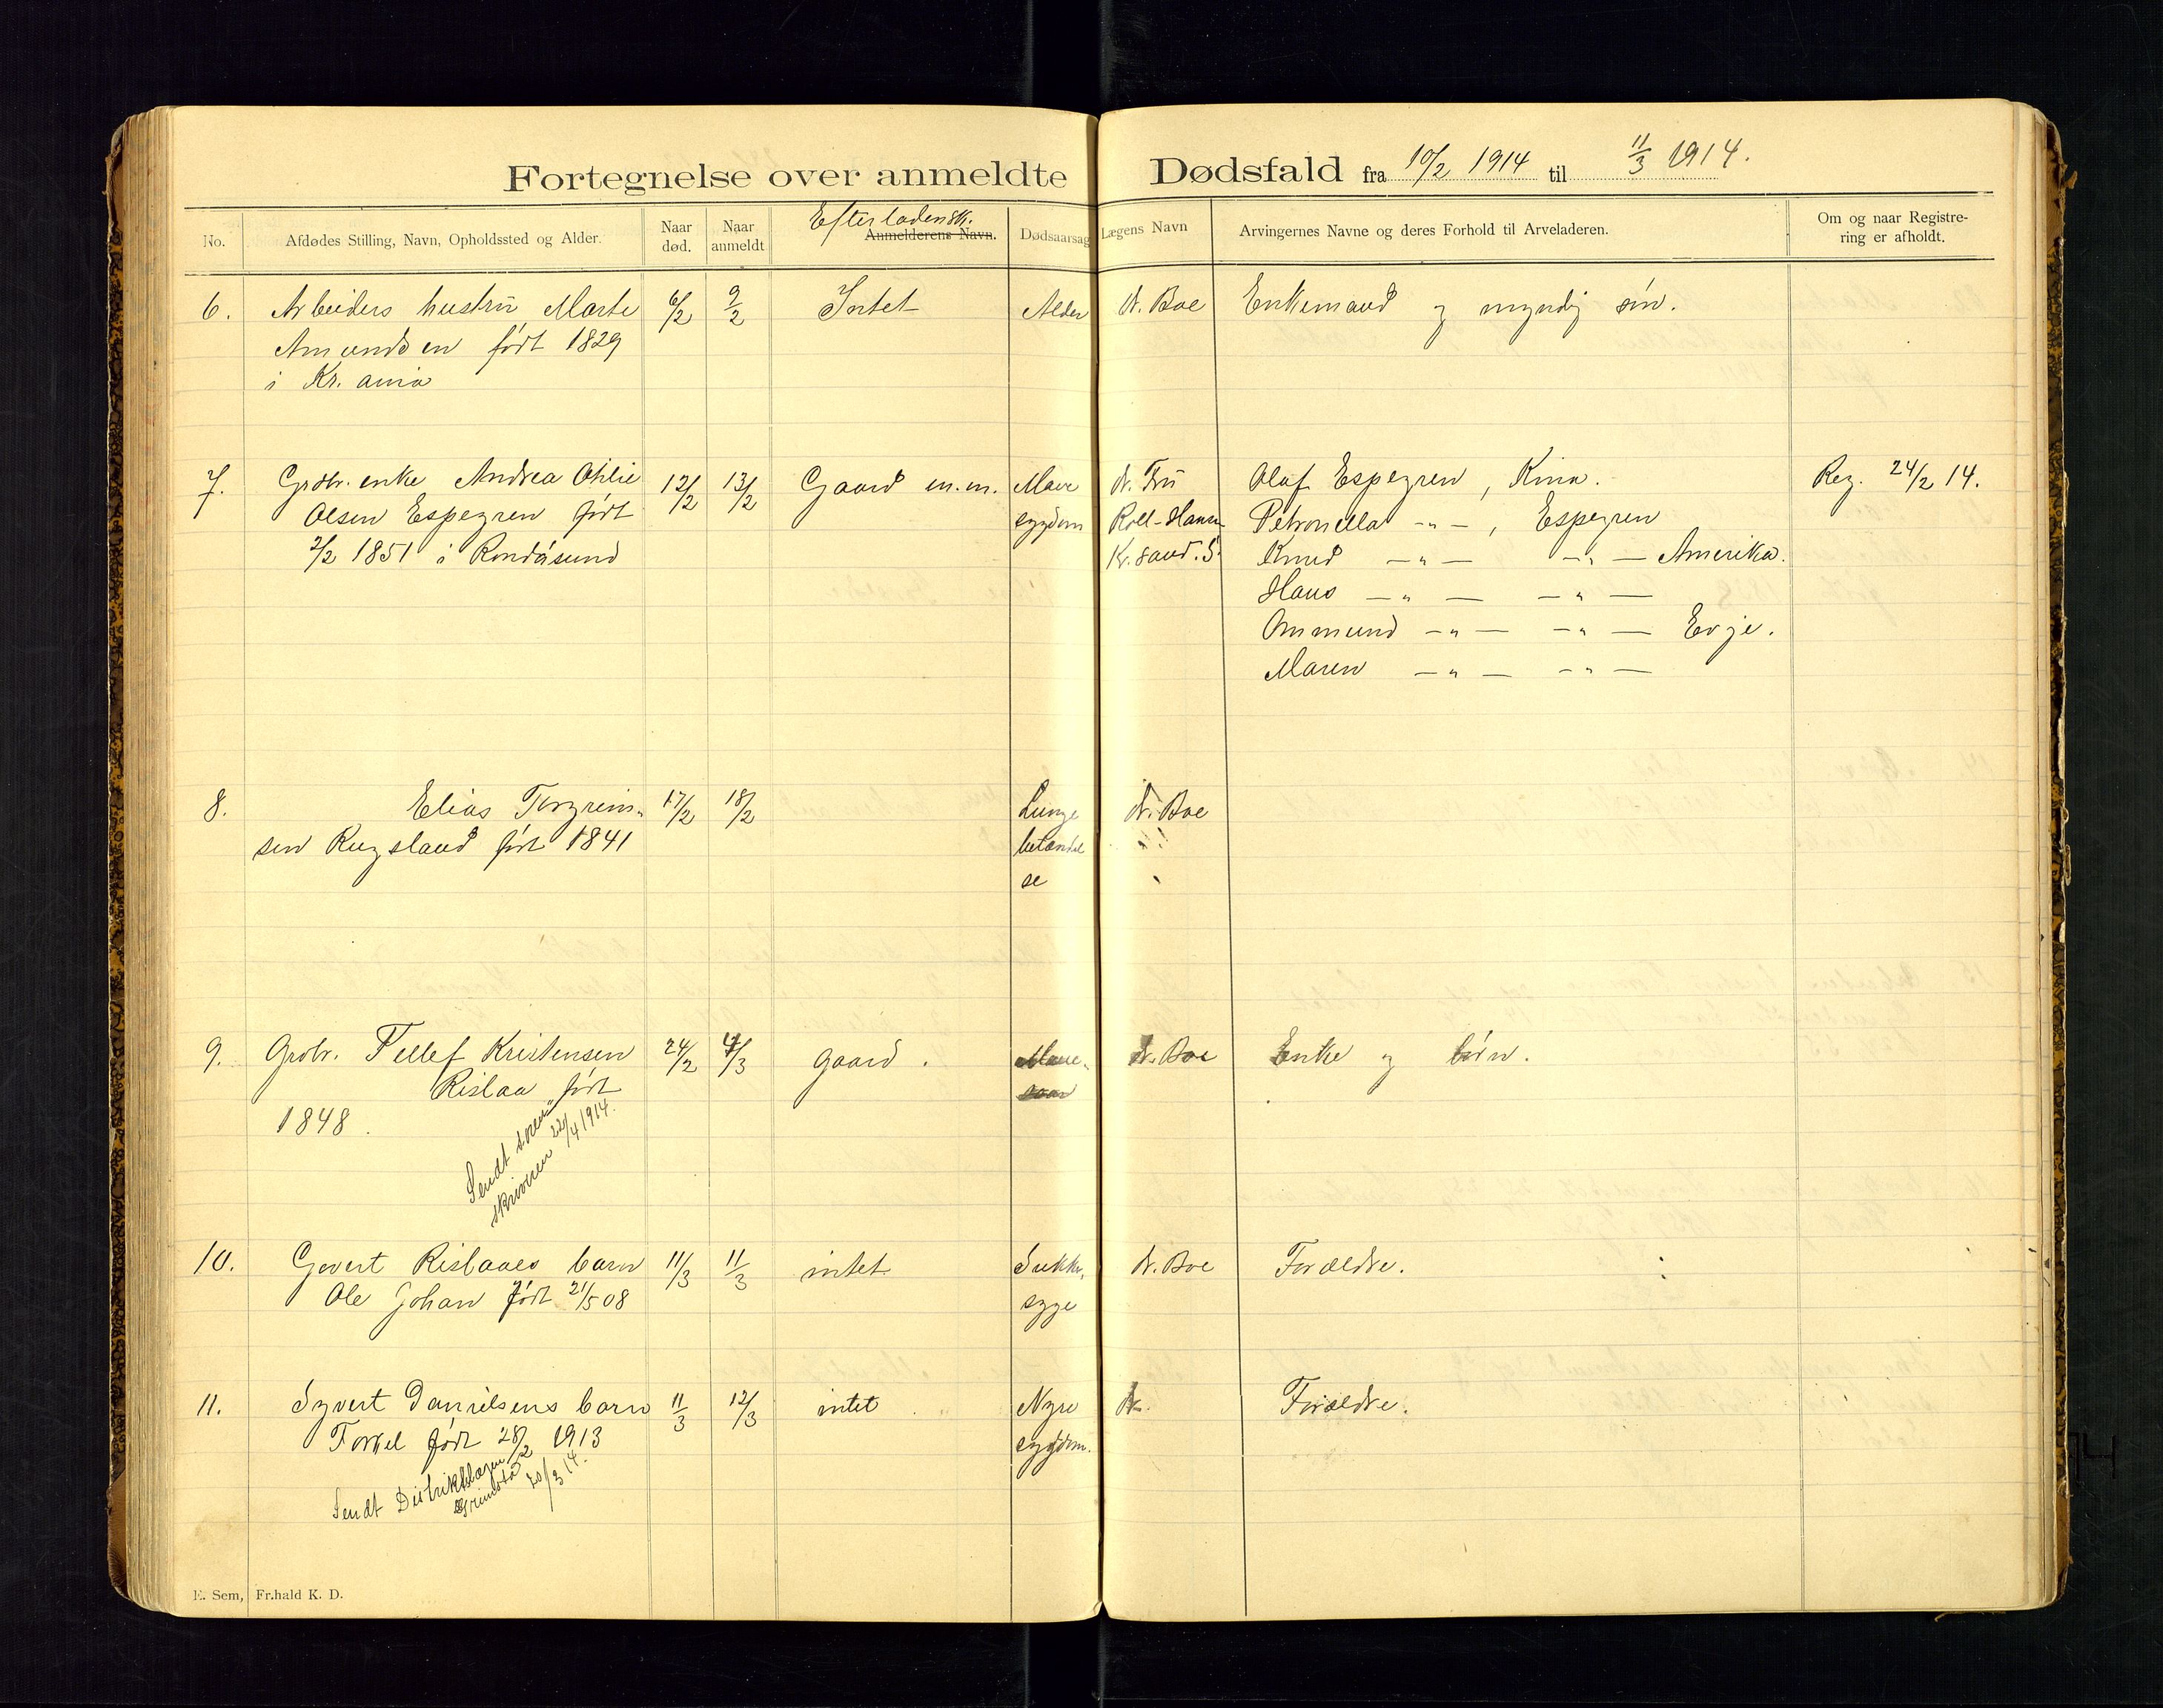 Fortegnelse over anmeldte Dødsfald fra 10/2 1914 til 11/3 1914.
No. Afdødes Stilling, Navn, Opholdssted og Alder. Naar død. Naar anmeldt Efterladensk. Anmelderens Navn. Dødsaarsag Lægens Navn Arvingernes Navne og deres Forhold til Arveladeren. Om og naar Registrering er afholdt.
6. Arbeiders hustru Marte 6/2 9/2 Intet Alder dr. Boe Enkemand og myndig søn.
Amundsen født 1829
i Kr.ania
7. Grdbr. enke Andrea Otilie 12/2 13/2 Gaard m.m. Mave dr. Fru Olaf Espegren, Kina. Reg. 24/2 14.
Olsen Espegren født sygdom Roll-Hansen Petronella -"-, Espegren
2/2 1851 i Randøsund Kr.sand. S. Knud -"- -"- Amerika.
Hans -"- -"-
Ommund -"- -"- Evje.
Maren -"- -"-
8. Elias Torgrim- 17/2 18/2 Lunge dr. Boe
sen Rugsland født 1841 betændel
se
9. Grdbr. Tellef Kristensen 24/2 4/3 gaard. Mave- dr. Boe Enke og børn.
Rislaa født saar
1848.
Sendt soren-
skriveren 22/4 1914.
10. Govert Rislaaes barn 11/3 11/3 intet Sukker- dr. Boe Forældre.
Ole Johan født 21/5 08 syge
11. Syvert Danielsens barn 11/3 12/3 intet Nyre dr. Forældre.
Torkel født 28/2 1913 sygdom.
Sendt Distriktslægen
Grimstad 20/3 14.
E. Sem, Fr.hald K. D.